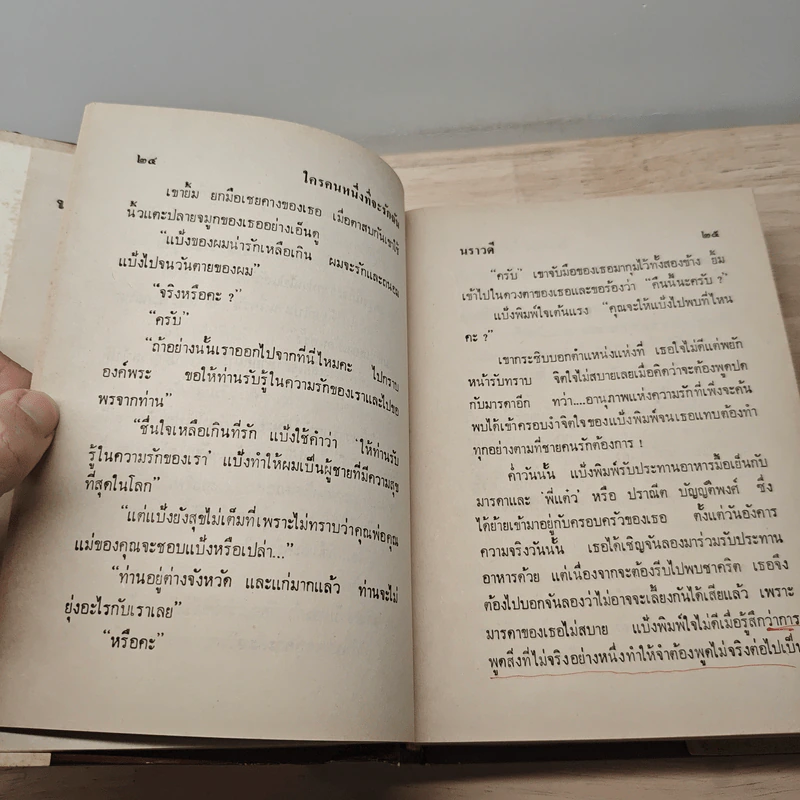 ๒๔
ใครคนหนึ่งที่จะรักฉัน
เขายิ้ม ยกมือเชยคางของเธอ เมื่อตาสบกันเขาใช้
นิ้วแตะปลายจมูกของเธออย่างเอ็นดู
“แป้งของผมน่ารักเหลือเกิน ผมจะรักและถนอม
แป้งไปจนวันตายของผม”
“จริงหรือคะ ?”
“ครับ”
“ถ้าอย่างนั้นเราออกไปจากที่นี่ไหมคะ ไปกราบ
องค์พระ ขอให้ท่านรับรู้ในความรักของเราและไปขอ
พรจากท่าน”
“ชื่นใจเหลือเกินที่รัก แป้งใช้คำว่า ‘ให้ท่านรับ
รู้ในความรักของเรา’ แป้งทำให้ผมเป็นผู้ชายที่มีความสุข
ที่สุดในโลก”
“แต่แป้งยังสุขไม่เต็มที่เพราะไม่ทราบว่าคุณพ่อคุณ
แม่ของคุณจะชอบแป้งหรือเปล่า...”
“ท่านอยู่ต่างจังหวัด และแก่มากแล้ว ท่านจะไม่
ยุ่งอะไรกับเราเลย”
“หรือคะ”
นราวดี
๒๕
“ครับ” เขาจับมือของเธอมากุมไว้ทั้งสองข้าง ยิ้ม
เข้าไปในดวงตาของเธอและขอร้องว่า “คืนนี้นะครับ ?”
แป้งพิมพ์ใจเต้นแรง “คุณจะให้แป้งไปพบที่ไหน
คะ ?”
เขากระซิบบอกตำแหน่งแห่งที่ เธอใจไม่ดีแต่พยัก
หน้ารับทราบ จิตใจไม่สบายเลยเมื่อคิดว่าจะต้องพูดปด
กับมารดาอีก ทว่า....อานุภาพแห่งความรักที่เพิ่งจะค้น
พบได้เข้าครอบงำจิตใจของแป้งพิมพ์จนเธอแทบต้องทำ
ทุกอย่างตามที่ชายคนรักต้องการ !
ค่ำวันนั้น แป้งพิมพ์รับประทานอาหารมื้อเย็นกับ
มารดาและ ‘พี่แต๋ว’ หรือ ปราณีต บัญญัติพงศ์ ซึ่ง
ได้ย้ายเข้ามาอยู่กับครอบครัวของเธอ ตั้งแต่วันอังคาร
ความจริงวันนั้น เธอได้เชิญจันลองมาร่วมรับประทาน
อาหารด้วย แต่เนื่องจากจะต้องรีบไปพบชาคริต เธอจึง
ต้องไปบอกจันลองว่าไม่อาจจะเลี้ยงกันได้เสียแล้ว เพราะ
มารดาของเธอไม่สบาย แป้งพิมพ์ใจไม่ดีเมื่อรู้สึกว่าการ
พูดสิ่งที่ไม่จริงอย่างหนึ่งทำให้จำต้องพูดไม่จริงต่อไปเป็น